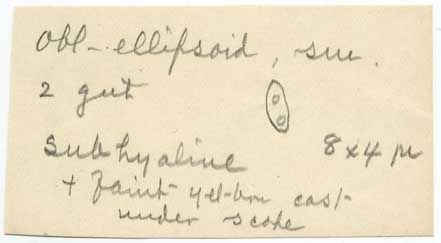 obl-ellipsoid, sm.
2 gut
8 x 4 µ
subhyaline
+ faint yel-brn cast
under scope